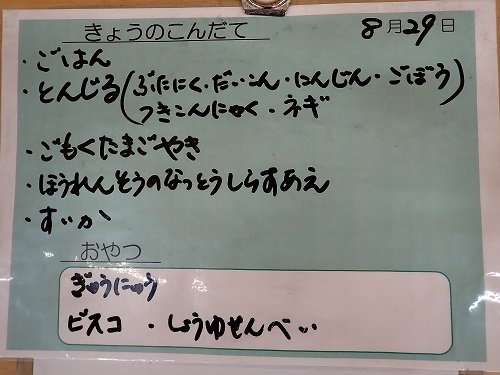 きょうのこんだて 8月29日
・ごはん
・とんじる(ぶたにく・だいこん・にんじん・ごぼう
つきこんにゃく・ネギ)
・ごもくたまごやき
・ほうれんそうのなっとうしらすあえ
・すいか
おやつ
ぎゅうにゅう
ビスコ ・しょうゆせんべい